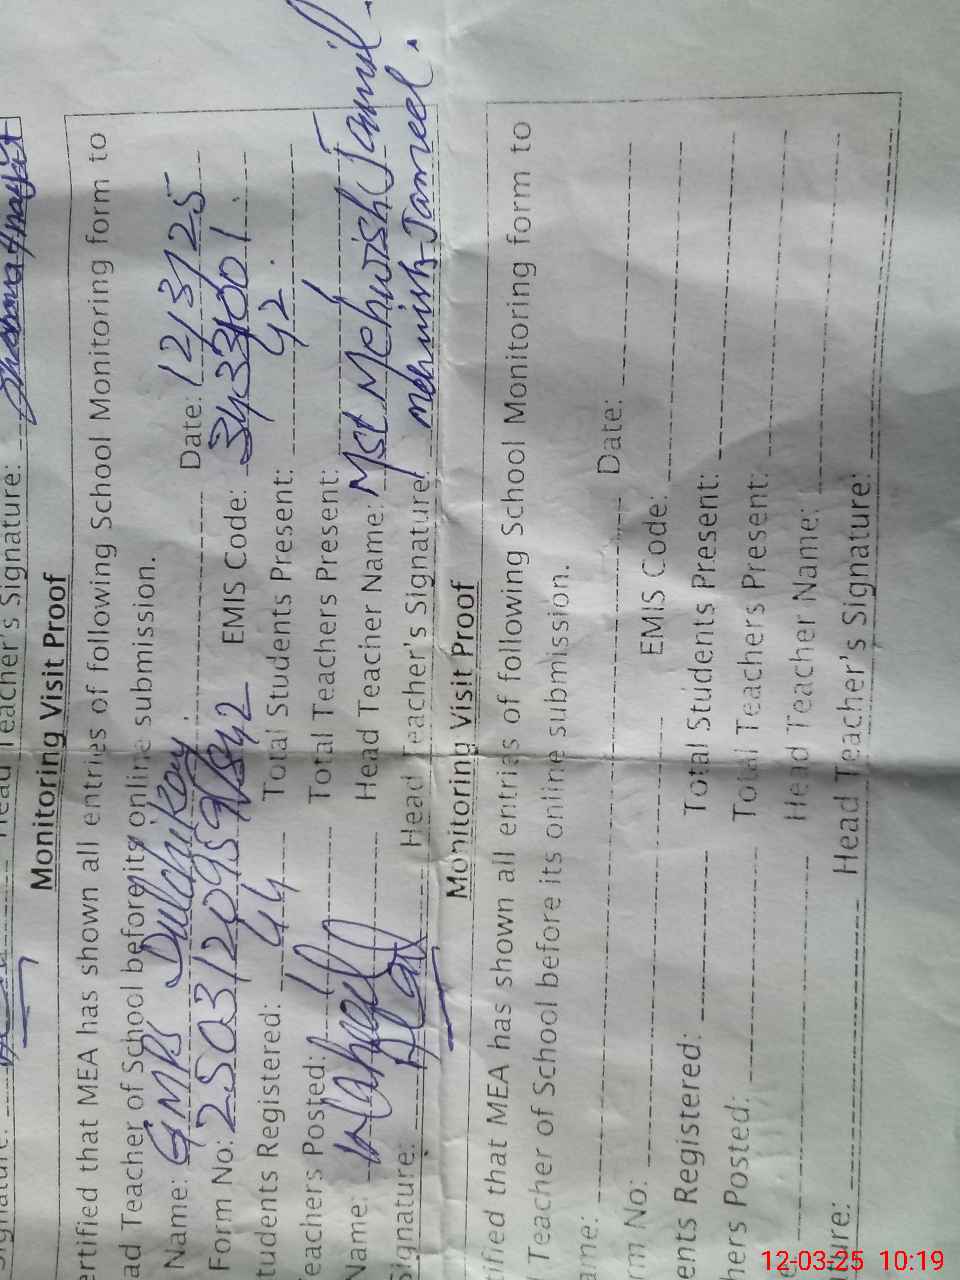 Head Teacher's Signature:
Monitoring Visit Proof
ertified that MEA has shown all entries of following School Monitoring form to
ad Teacher of School before its online submission.
Name: GMPS Date: 12/3/25
Form No: EMIS Code:
tudents Registered: 44 Total Students Present: 42
Teachers Posted: 1 Total Teachers Present: 1
Name: Head Teacher Name: Mst Mehwish Jamil
Signature: Head Teacher's Signature: Mehwish Jameel
Monitoring Visit Proof
tified that MEA has shown all entries of following School Monitoring form to
Teacher of School before its online submission.
ame: Date:
rm No: EMIS Code:
ents Registered: Total Students Present:
hers Posted: Total Teachers Present:
e Head Teacher Name:
ture: Head Teacher's Signature:
12-03-25 10:19